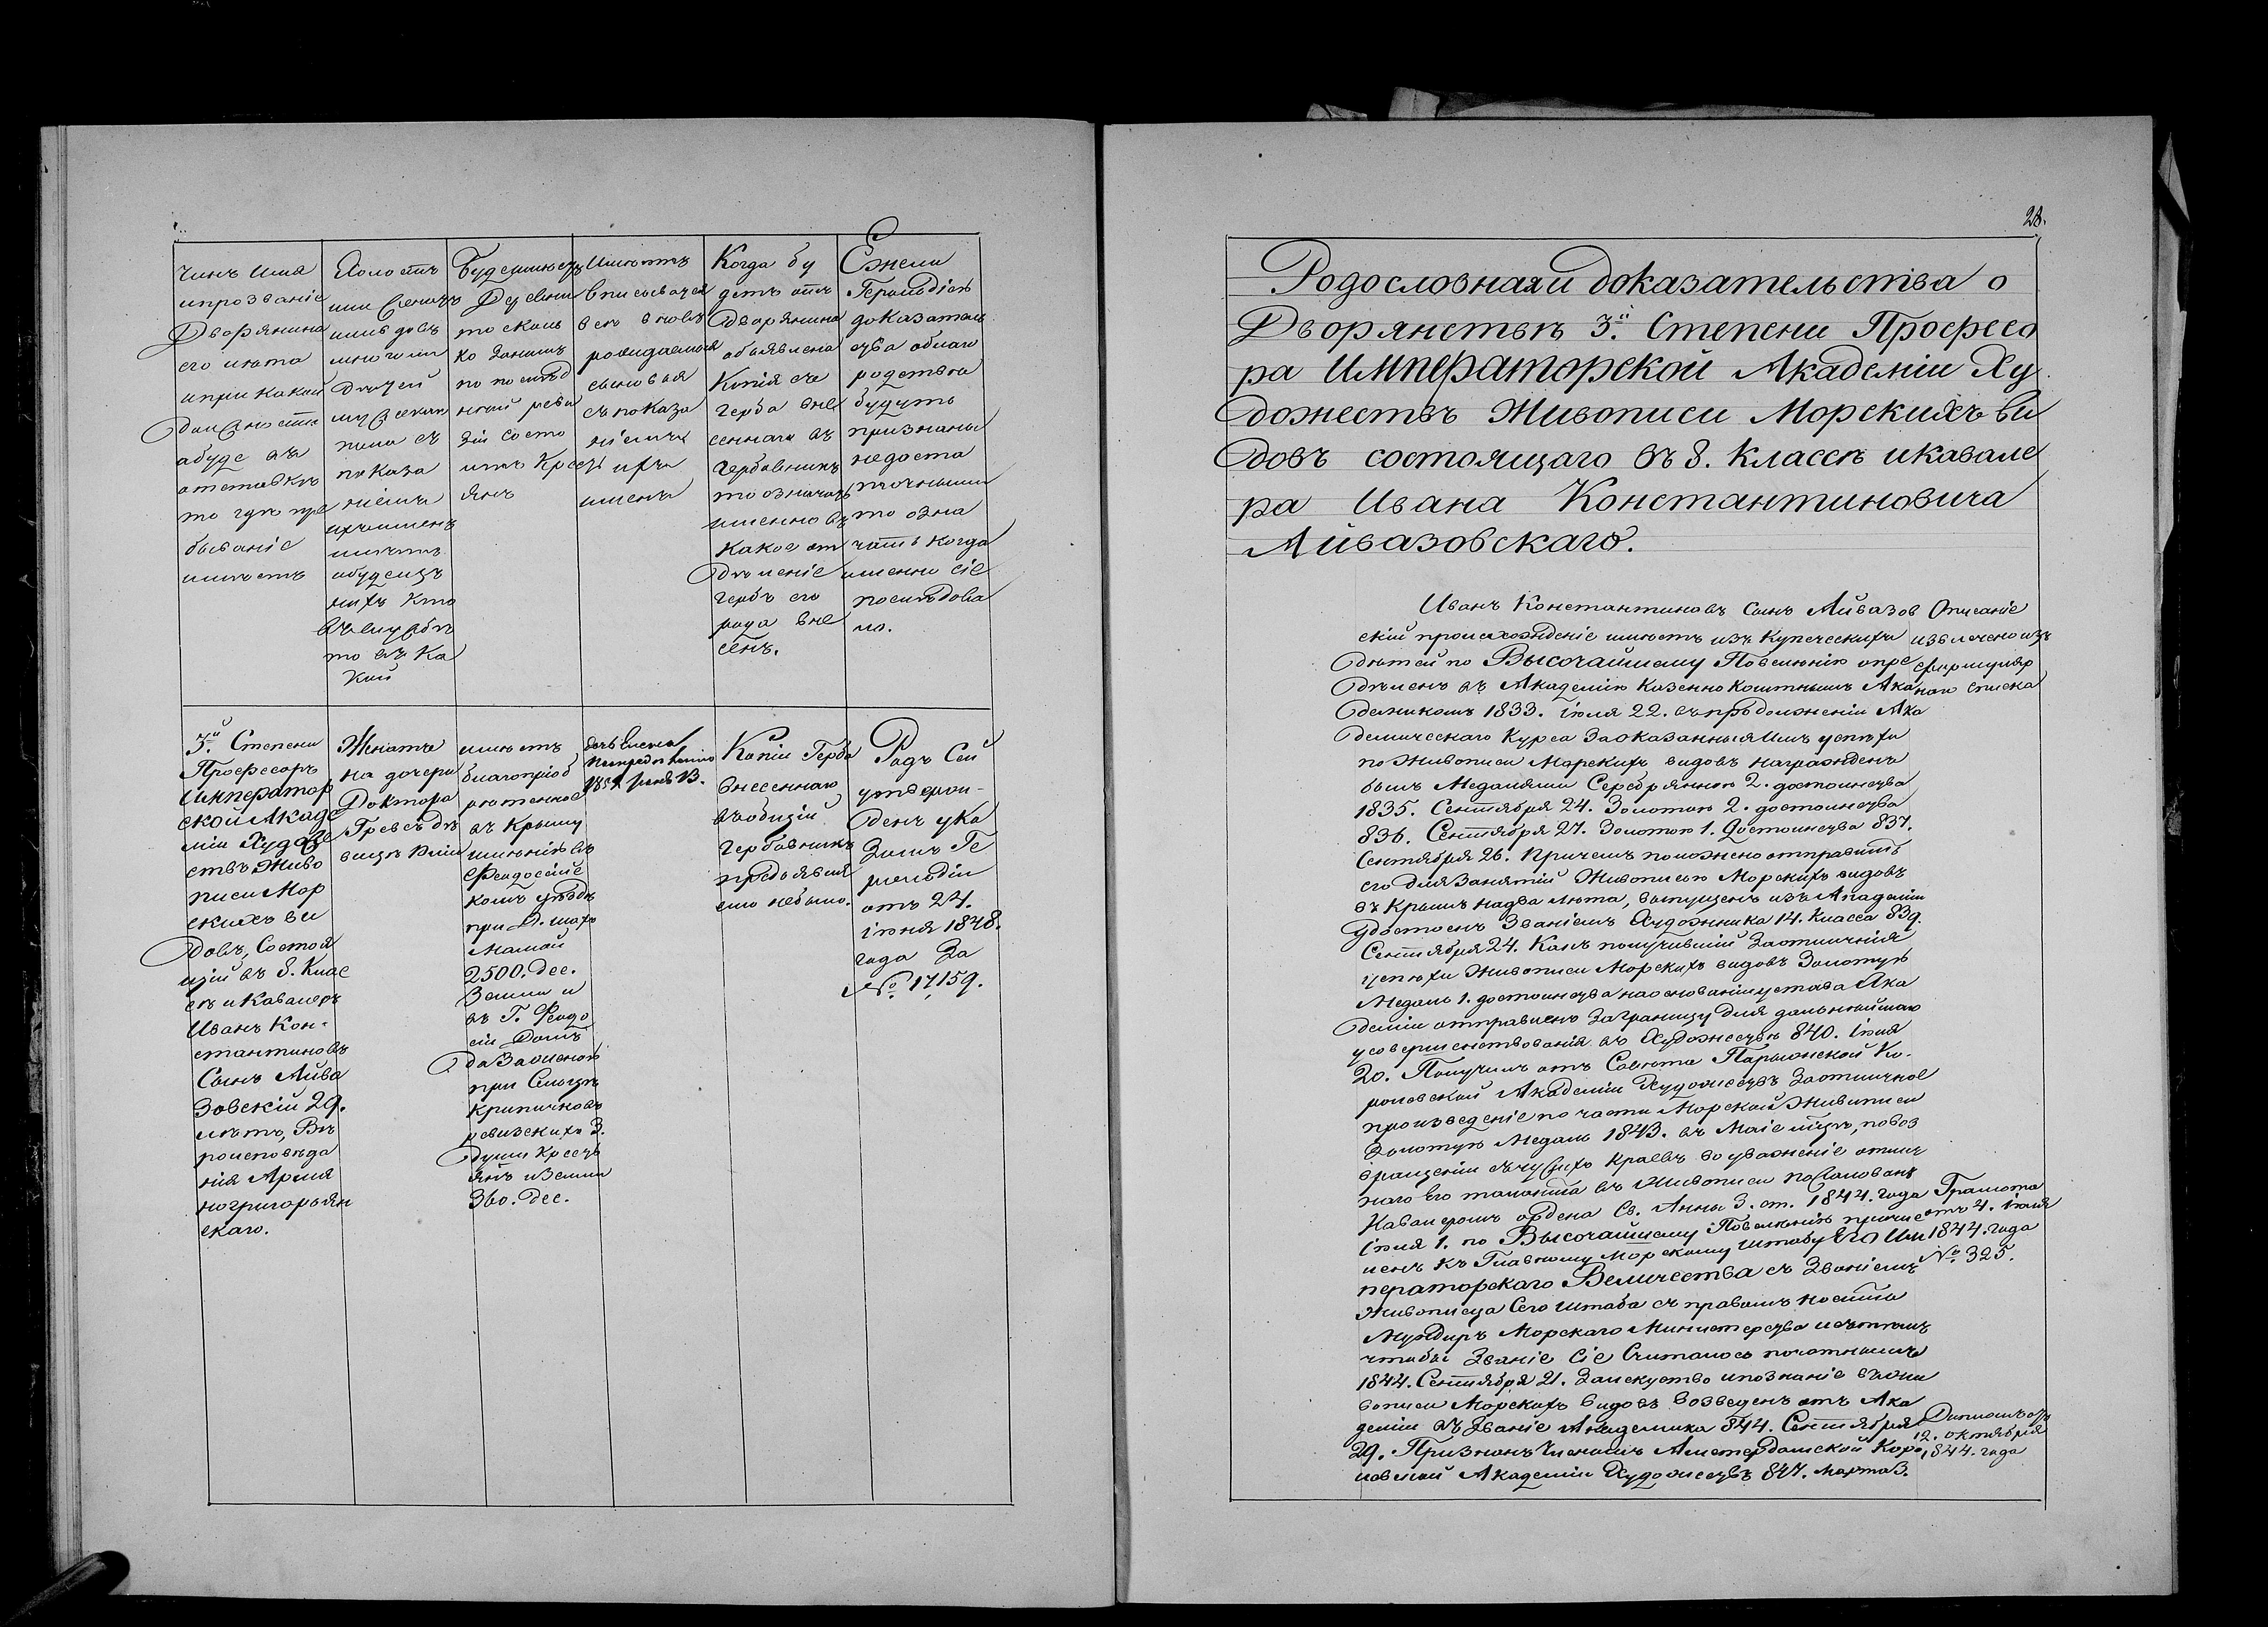 Чинъ имя
ипрозваніе
Дворянина
его лѣта
ипри какой
должности
абуде въ
отставкѣ
то гдѣ пре
бываніе
имѣетъ
Холостъ
или женатъ
иливдовъ
многоли
дѣтей
мужеска
пола съ
показа
ніемъ
ихъименъ
илѣтъ
ибудеизъ
нихъ кто
въслужбѣ
то въ ка
кой
Будеимѣетъ
Деревни
то сколь
ко занимъ
по послѣд
ней реви
зіи состо
итъ крест
янъ
Имѣютъ
вписыватся
всю вновь
рождаемыя
сыновья
съпоказа
ніемъ
ихъ
именъ
Когда бу
детъ отъ
Дворянина
объявлена
Копія съ
герба вне
сеннаго въ
Гербовникъ
то означать
именно въ
какое от
дѣленіе
гербъ его
рода вне
сенъ.
Ежели
Герольдіею
доказатель
ства облаго
родствѣ
будутъ
признаны
недоста
точными
то озна
чать когда
именно сіе
послѣдова
ло.
3й. Степени
Професоръ
Император
ской Акаде
міи Художе
ствъ Живо
писи Мор
скихъ ви
довъ, Состоя
щій въ 8. Клас
сѣ и Кавалеръ
Иванъ Кон-
стантиновъ
Сынъ Айва
зовскій 29.
лѣтъ, Вѣ
роисповѣда
нія Армя
ногригорьян
скаго.
Женатъ
на дочери
Доктора
Гревсъ дѣ
вицѣ Юліи
имѣетъ
благопріоб
рѣтенное
въ Крыму
имѣніе въ
Феодосійс
комъ уѣздѣ
при Д. шахъ
Мамай
2500. дес.
Земли и
въ Г. Феодо
сіи Домъ
да Заоленой
при Слоидѣ
Криничковъ
ревизскихъ 3.
души крест
янъ иЗемли
360. дес.
дочь Елена
Копіи Герба
внесеннаго
въобщій
гербовникъ
предъявля
емо небыло.
Родъ Сей
утверж-
денъ ука
зомъ Ге
рольдіи
отъ 24.
іюня 1848.
года За
№. 17,159.
28.
Родословная и доказательства о
Дворянствѣ 3й. Степени Професо
ра Императорской Академіи Ху
дожествъ Живописи Морскихъ ви
довъ состоящаго въ 8. классѣ икавале
ра Ивана Константиновича
Айвазовскаго.
Иванъ Константиновъ Сынъ Айвазов
скій происхожденіе имѣетъ изъ Купеческихъ
дѣтей по Высочайшему Повелѣнію опре
дѣленъ въ Академію Казеннокоштнымъ Ака
демикомъ 1833. іюля 22. въпродолженіи Ака
демическаго Курса Заоказанныя Имъ успѣхи
поЖивописи Морскихъ видовъ награжденъ
былъ Медалями Серебрянною 2. достоинства
1835. Сентября 24. Золотою 2. достоинства
836. Сентября 27. Золотою 1. Достоинства 837.
Сентября 26. Причемъ положено отправить
его дляЗанятій Живописью Морскихъ видовъ
въ Крымъ надва лѣта, выпущенъ изъ Академіи
Удостоенъ Званіемъ Художника 14. Класса 839.
Сентября 24. Какъ получившій Заотличнія
успѣхи Живописи Морскихъ видовъ Золотую
Медаль 1. достоинства наоснованіиустава Ака
деміи отправленъ Заграницу для дальнѣйшаго
усовершенствованія въ Художествѣ 840. іюля
20. Получилъ отъ Совѣта Парижской Ко-
ролевской Академіи Художествъ Заотличное
произведеніе по части Морской Живописи
Золотую Медаль 1843. въ Маіе мцѣ, повоз
вращеніи съчужихъ краевъ во уваженіе отлич
наго Его таланта въ Живописи пожалованъ
Кавалеромъ ордена Св. Анны 3. ст. 1844. года
іюля 1. по Высочайшему Повелѣнію причис
ленъ къ Главному Морскому штабу Его Им
ператорскаго Величества съ Званіемъ
Живописца Сего штаба съ правомъ носить
Мундиръ Морскаго Министерства исътѣмъ
чтобы Званіе Сіе Считалось почотнымъ
1844. Сентября 21. Заискуство ипознаніе вжи
вописи Морскихъ видовъ возведенъ отъ Ака
деміи въ Званіе Академика 844. Сентября
29. Признанъ Членомъ Амстердамской Коро
левской Академіи Художествъ 847. Марта 3.
Описаніе
извлечено изъ
формуляр
наго списка
Грамота
отъ 4. іюля
1844. года
№. 325.
Дипломъ отъ
12. октября
1844. года